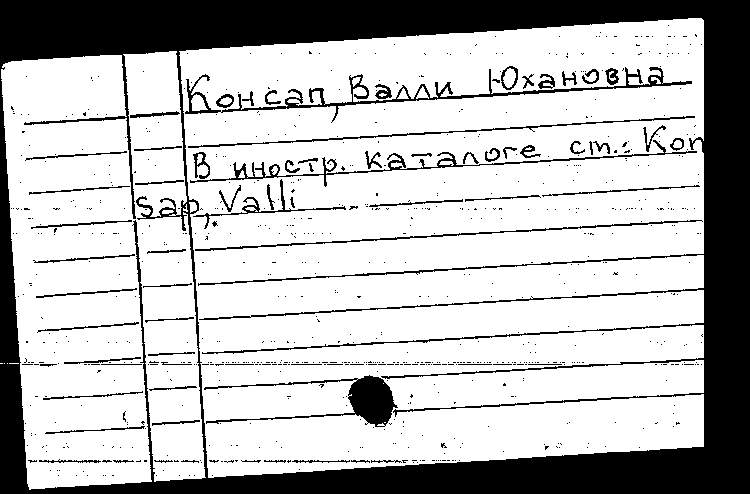 Консап, Валли Юхановна
В иностр. каталоге ст.: Kon
sap, Valli